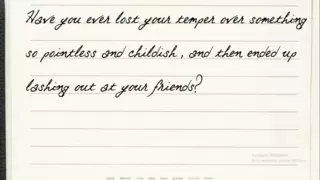 Have you ever lost your temper over something
so pointless and childish, and then ended up
lashing out at your friends?